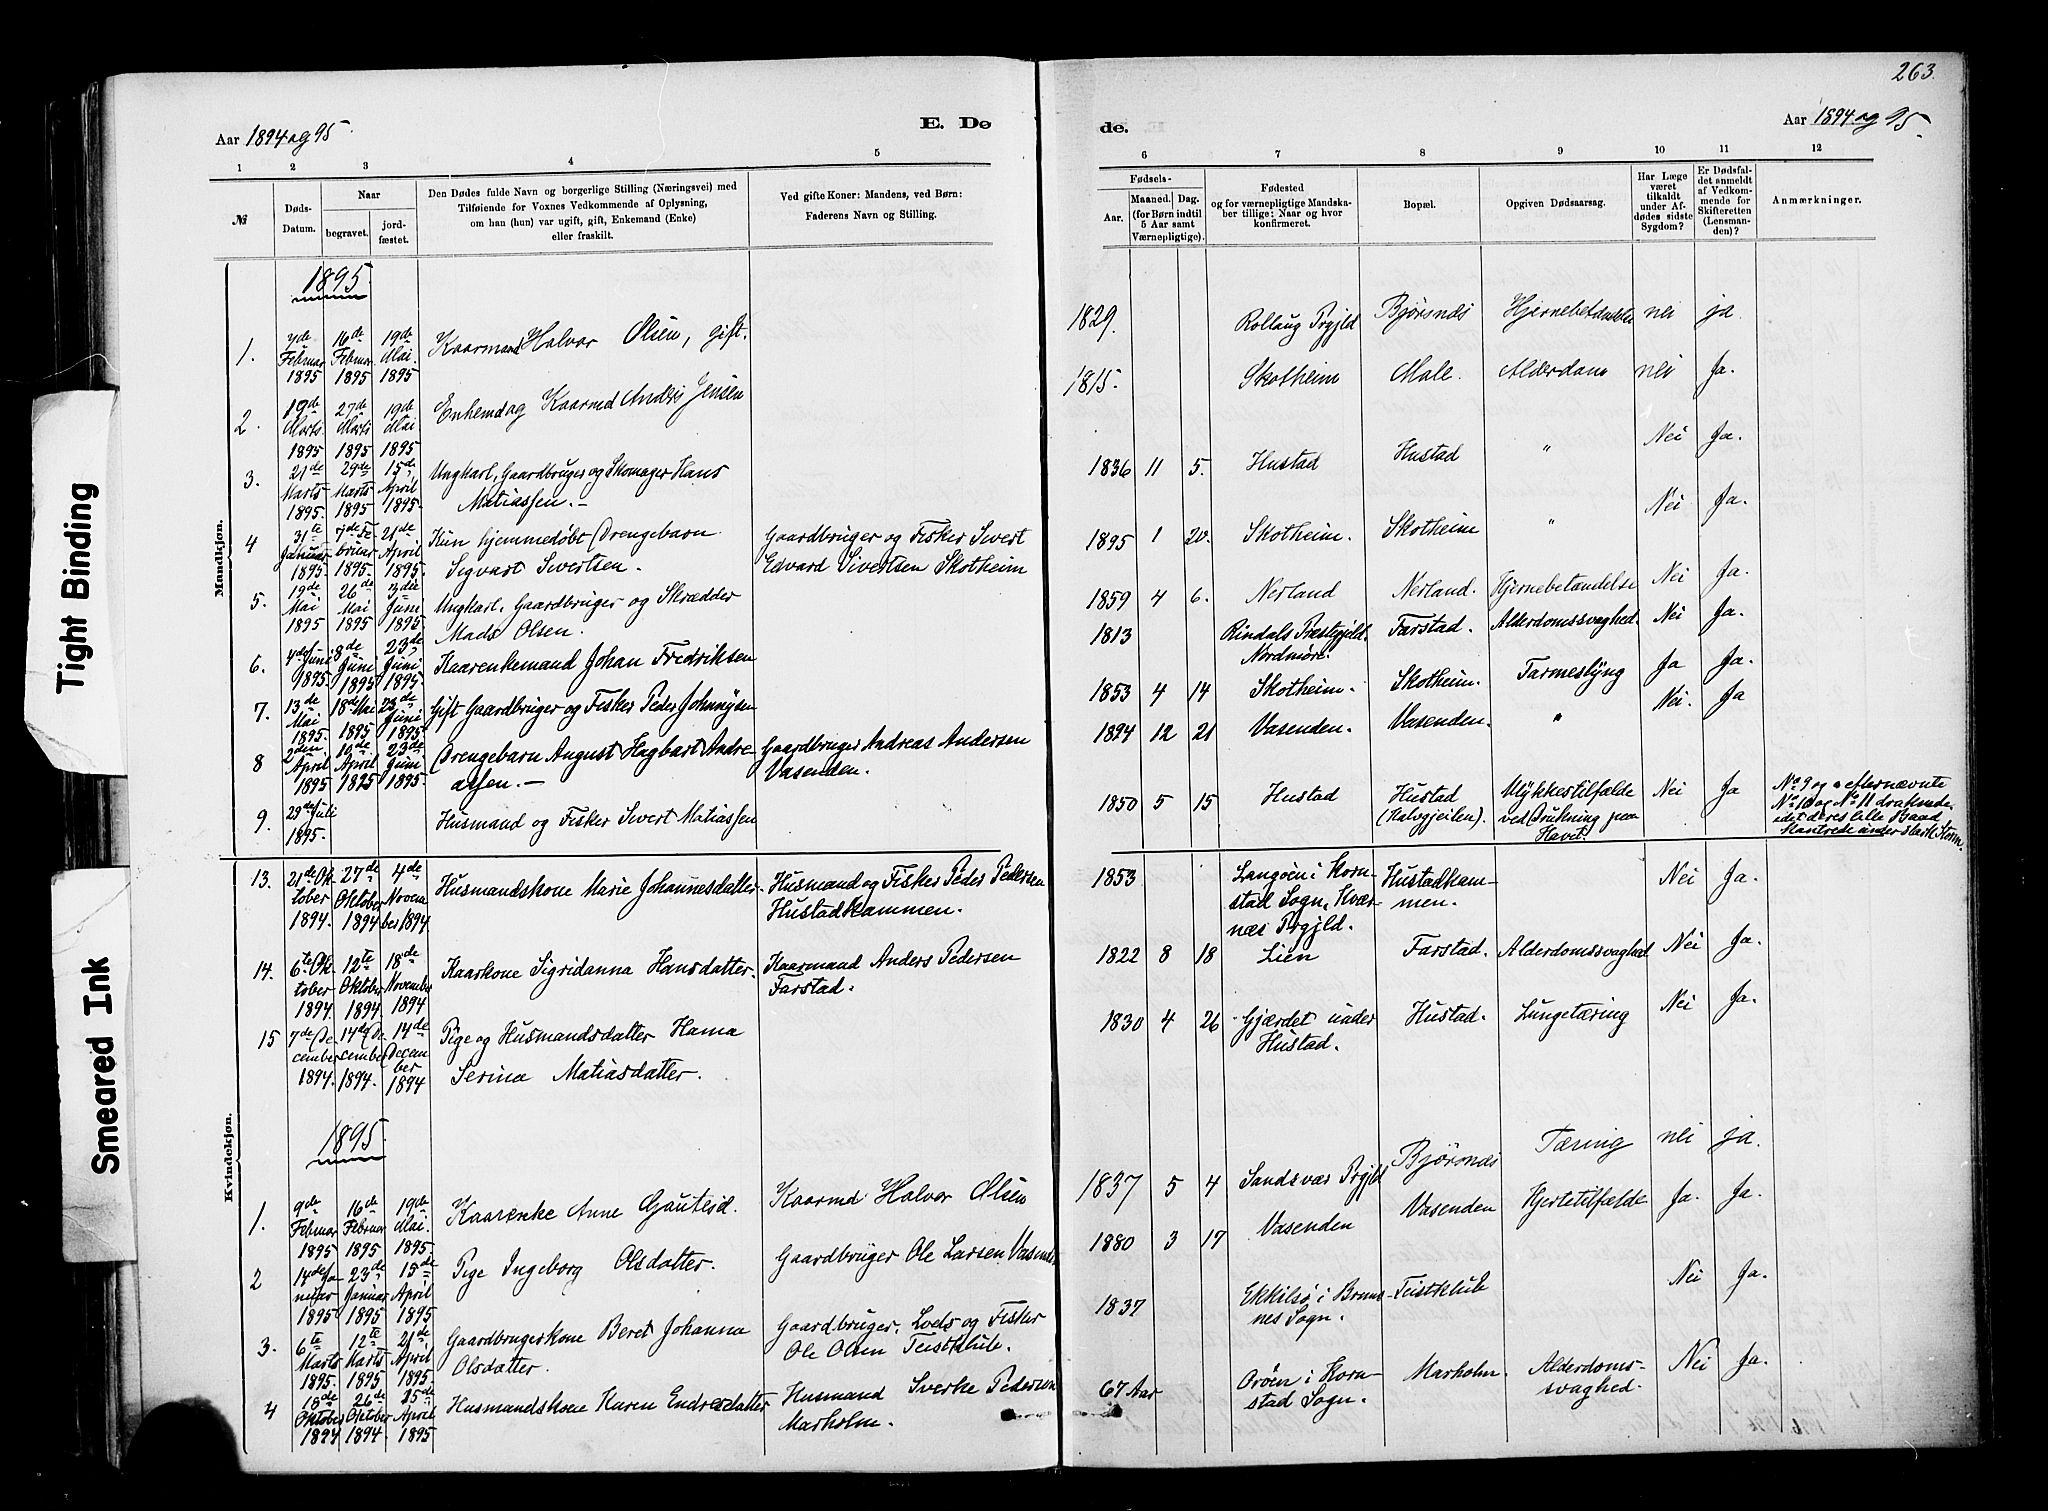 263.
Aar 1894 og 95.
E. Dø
de.
Aar 1894 og 95.
1 2 3 4 5
6 7 8 9 10 11 12
№
Døds-
Datum.
Naar
begravet.
jord-
fæstet.
Den Dødes fulde Navn og borgerlige Stilling (Næringsvei) med
Tilføiende for Voxnes Vedkommende af Oplysning,
om han (hun) var ugift, gift, Enkemand (Enke)
eller fraskilt.
Ved gifte Koner: Mandens, ved Børn:
Faderens Navn og Stilling.
Fødsels-
Aar.
Maaned.
Dag.
(for Børn indtil
5 Aar samt
Værnepligtige).
Fødested
og for værnepligtige Mandska-
ber tillige: Naar og hvor
konfirmeret.
Bopæl.
Opgiven Dødsaarsag.
Har Læge
været
tilkaldt
under Af-
dødes sidste
Sygdom?
Er Dødsfal-
det anmeldt
af Vedkom-
mende for
Skifteretten
(Lensman-
den)?
Anmærkninger.
Mandkjøn.
1895.
1. 7de Februar 1895 16de Februar 1895 19de Mai 1895 Kaarmand Halvor Olsen, gift. 1829. Rollaug Prgjld Bjørsnes Hjernebetændelse nei ja
2. 19de Marts 1895 27de Marts 1895 19de Mai 1895 Enkemd og Kaarmd Anders Jensen 1815. Skotheim Male. Alderdom nei Ja.
3. 21de Marts 1895 29de Marts 1895 15de April 1895. Ungkarl, Gaardbruger og Skomager Hans
Matiassen. — 1836 11 5. Hustad Hustad " Nei Ja.
4 31te Januar 1895. 7de Februar 1895. 21de April 1895. Kun hjemmedøbt Drengebarn Gaardbruger og Fisker Sivert
Sigvart Sivertsen. Edvard Sivertsen Skotheim 1895 1 20. Skotheim. Skotheim " Nei Ja.
5. 19de Mai 1895 26de Mai 1895 3die Juni 1895. Ungkarl, Gaardbruger og Skrædder
Mads Olsen. 1859 4 6. Nerland Nerland. Hjernebetændelse Nei Ja.
6. 4de Juni 1895. 8de Juni 1895 23de Juni 1895. Kaarenkemand Johan Fredriksen 1813 Rindals Præstgjeld.
Nordmøre. Farstad. Alderdomssvaghed. Nei Ja.
7. 13de Mai 1895. 18de Mai 1895 23de Juni 1895. Gift Gaardbruger og Fisker Peder Johnnysen 1853 4 14 Skotheim. Skotheim. Tarmeslyng Ja Ja.
8 2den April 1895 19de April 1895 23de Juni 1895. Drengebarn August Hagbart Andre- Gaardbruger Andreas Andersen
assen. — Vasenden. 1894 12 21 Vasenden. Vasenden. " Nei. Ja
9. 29de Juli 1895. Husmand og Fisker Sivert Matiassen 1850 5 15 Hustad Hustad
(Halvgjeilen) Ulykkestilfælde
ved Drukning paa
Havet. Nei Ja No 9 og efternævnte
No 10 og No 11 druknede,
idet deres lille Baad
kantrede under stærk Storm.
Kvindekjøn.
13. 21de Oktober 1894. 27de Oktober 1894 4de November 1894 Husmandskone Marie Johannesdatter. Husmand og Fisker Peder Pedersen
Hustadkammen. 1853 Langøen i Korn-
stad Sogn, Kvær-
næs Prgjld. Hustadkam-
men. Nei Ja.
14. 6te Oktober 1894. 12te Oktober 1894 18de November 1894 Kaarkone Sigridanna Hansdatter. Kaarmand Anders Pedersen
Farstad. 1822 8 18 Lien Farstad. Alderdomssvaghed Nei Ja.
15 7de December 1894. 14de December 1894. 14de December 1894 Pige og Husmandsdatter Hanna
Serina Matiasdatter. 1830 4 26 Gjærdet under
Hustad. Hustad. Lungetæring Nei Ja.
1895.
1. 9de Februar 1895 16de Februar 1895 19de Mai. 1895. Kaarenke Anne Gautesd. Kaarmd Halvor Olsen 1837 5 4 Sandsvær Prgjld Bjørsnæs Tæring nei ja.
2 14de Januar 1895 23de Januar 1895 15de April 1895 Pige Ingeborg Olsdatter. Gaardbruger Ole Larsen Vasenden 1880 3 17 Vasenden Vasenden Hjertetilfælde Ja. Ja.
3. 6te Marts 1895. 12te Marts 1895 21de April 1895 Gaardbrugerkone Beret Johanna Gaardbruger, Lods og Fisker
Olsdatter. Ole Olsen Teistklub. 1837 Ekkilsø i Brems-
nes Sogn. Teistklub Nei Ja.
4 18de Oktober 1894 26de Oktober 1894. 15de April 1895 Husmandskone Karen Endresdatter Husmand Sverke Pedersen
Marholm. 67 Aar Orøen i Korn-
stad Sogn. Marholm. Alderdoms-
svaghed. Nei Ja.
Tight Binding
Smeared Ink